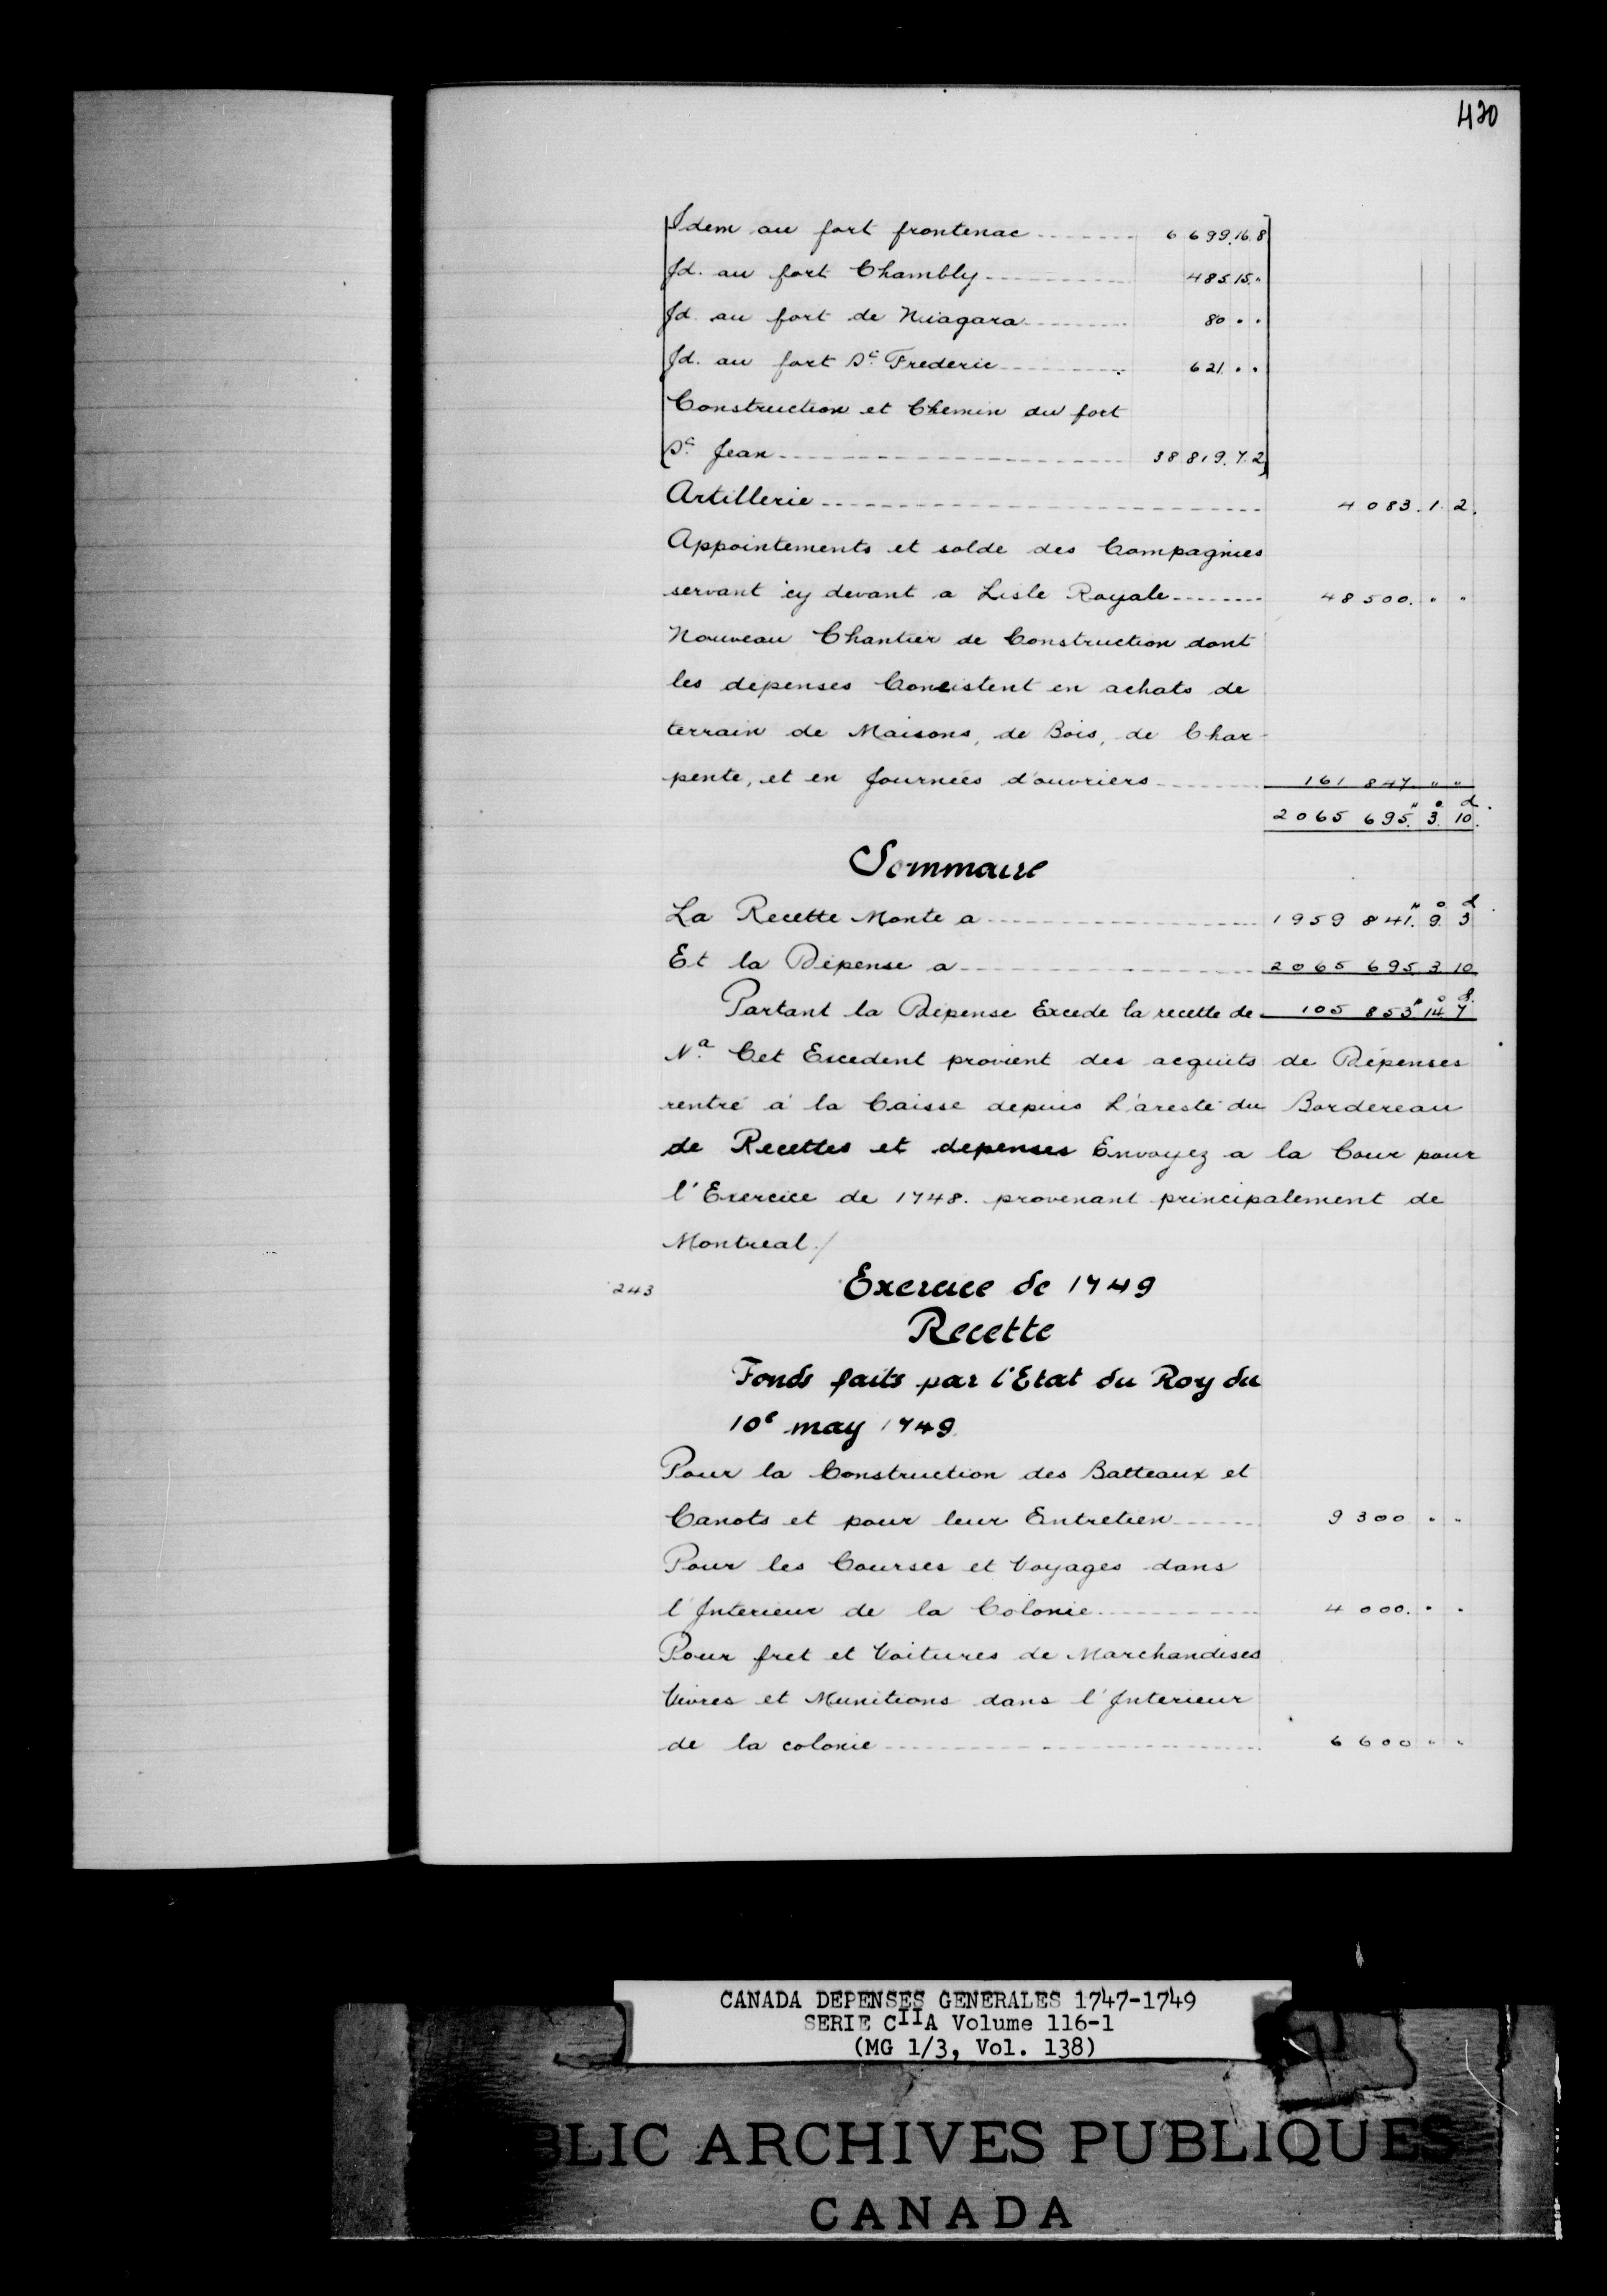 420
Idem au fort frontenac 6 699.16.8
Id. au fort Chambly 485.15."
Id. au fort de Niagara 80 " "
Id. au fort St. Frederic 621. " "
Construction et Chemin du fort
St. Jean 38 819.7.2
Artillerie 4 083.1.2.
Appointements et solde des Compagnies
servant cy devant a Lisle Royale 48 500. " "
Nouveau Chantier de Construction dont
les depenses Consistent en achats de
terrain de Maisons, de Bois, de Char-
pente, et en Journées d'ouvriers 161 847. " "
2065 695.ʺ 3.ˢ 10.ᵈ
Sommaire
La Recette Monte a 1959 841.ʺ 9.ˢ 3ᵈ
Et la Dépense a 2065 695.3.10
Partant la Dépense Excede la recette de 105 853ʺ 14ˢ 7ᵈ
Nᵃ. Cet Excedent provient des acquits de Dépenses
rentré à la Caisse depuis L'aresté du Bordereau
de Recettes et depenses Envoyez a la Cour pour
l'Exercice de 1748. provenant principalement de
Montreal./
243 Exercice de 1749
Recette
Fonds faits par l'Etat du Roy du
10ᵉ may 1749
Pour la Construction des Batteaux et
Canots et pour leur Entretien 9 300 " "
Pour les Courses et Voyages dans
l'Interieur de la Colonie 4 000. " "
Pour fret et Voitures de Marchandises
Vivres et Munitions dans l'Interieur
de la colonie 6 600 " "
CANADA DEPENSES GENERALES 1747-1749
SERIE CIIA Volume 116-1
(MG 1/3, Vol. 138)
BLIC ARCHIVES PUBLIQUES
CANADA